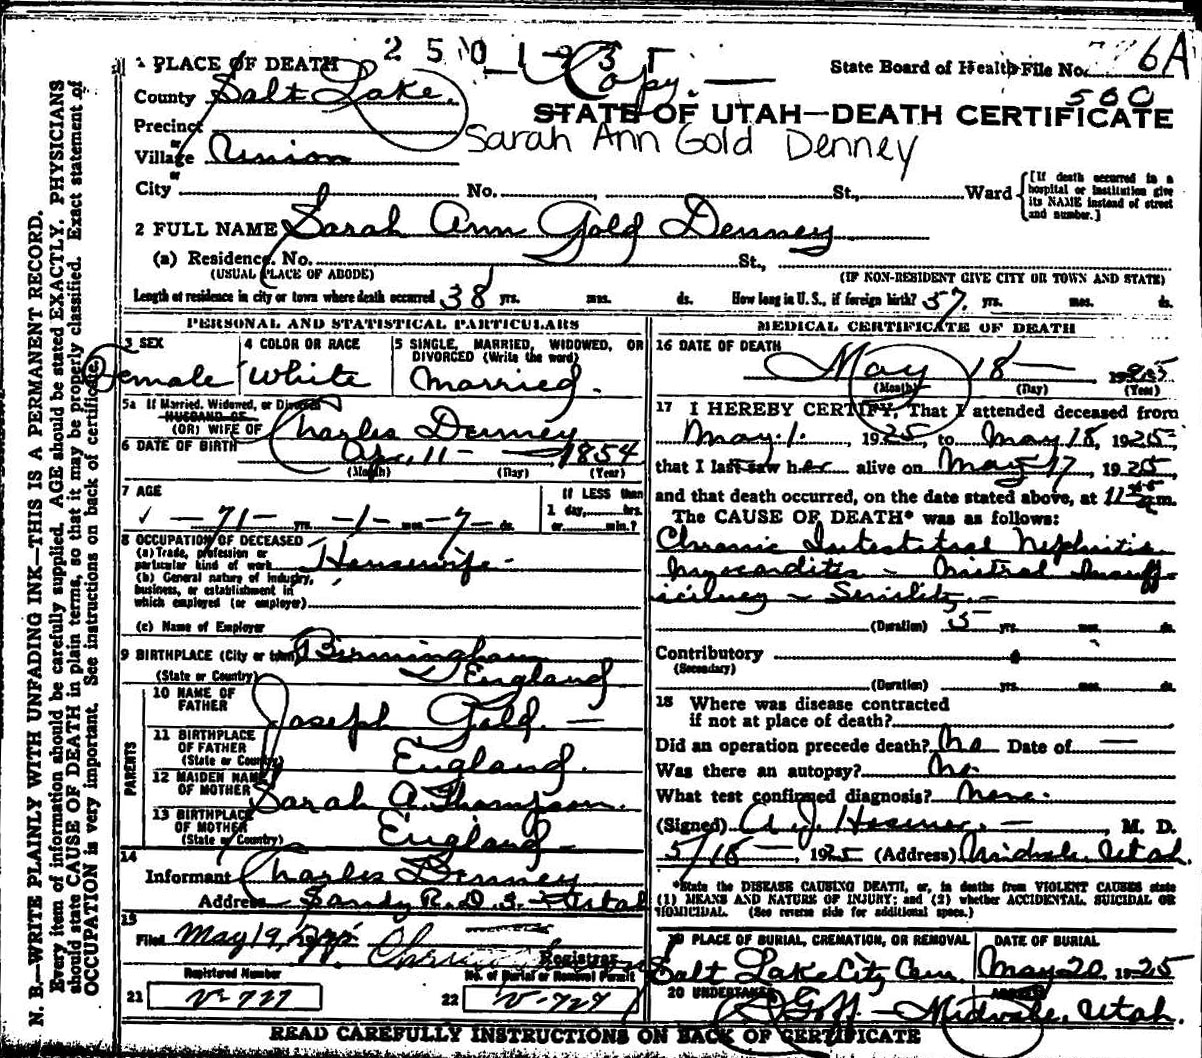 2 5 0 1 3 5
Copy.
6A
1 PLACE OF DEATH
State Board of Health File No.
500
County Salt Lake.
STATE OF UTAH—DEATH CERTIFICATE
Precinct
or
Sarah Ann Gold Denney
Village Union
or
City No. St., Ward
[If death occurred in a hospital or institution give its NAME instead of street and number.]
2 FULL NAME Sarah Ann Gold Denney
(a) Residence. No. St.,
(USUAL PLACE OF ABODE) (IF NON-RESIDENT GIVE CITY OR TOWN AND STATE)
Length of residence in city or town where death occurred 38 yrs. mos. ds. How long in U. S., if foreign birth? 57 yrs. mos. ds.
PERSONAL AND STATISTICAL PARTICULARS
3 SEX
Female
4 COLOR OR RACE
White
5 SINGLE, MARRIED, WIDOWED, OR DIVORCED (Write the word)
Married.
5a If Married, Widowed, or Divorced
HUSBAND OF
(OR) WIFE OF Charles Denney
6 DATE OF BIRTH Apr. 11 — 1854
(Month) (Day) (Year)
7 AGE
— 71 — yrs. — 1 — mos. — 7 — ds.
If LESS than
1 day, hrs.
or min.?
8 OCCUPATION OF DECEASED
(a) Trade, profession or
particular kind of work Housewife -
(b) General nature of industry,
business, or establishment in
which employed (or employer)
(c) Name of Employer
9 BIRTHPLACE (City or town) Birmingham
(State or Country) England
PARENTS
10 NAME OF
FATHER Joseph Gold. —
11 BIRTHPLACE
OF FATHER
(State or Country) England.
12 MAIDEN NAME
OF MOTHER Sarah A. Thompson.
13 BIRTHPLACE
OF MOTHER
(State or Country) England —
14
Informant Charles Denney
Address Sandy R.D. 3. - Utah
15
Filed May 19, 1925
Registrar
Registered Number
No. of Burial or Removal Permit
21 V-727
22 V-727
MEDICAL CERTIFICATE OF DEATH
16 DATE OF DEATH
May 18 — 1925
(Month) (Day) (Year)
17 I HEREBY CERTIFY, That I attended deceased from
May. 1. , 1925, to May 18, 1925
that I last saw her alive on May 17 1925,
and that death occurred, on the date stated above, at 11 a m.
The CAUSE OF DEATH* was as follows:
Chronic Intestitial Nephritis
Myocarditis - Mitral Insuff-
iciency - Senility. -
(Duration) 5 yrs. mos. ds.
Contributory
(Secondary)
(Duration) yrs. mos. ds.
18 Where was disease contracted
if not at place of death?
Did an operation precede death? No Date of —
Was there an autopsy? No.
What test confirmed diagnosis? None.
(Signed) A. J. , M. D.
5/18 - , 1925 (Address) Midvale, Utah.
*State the DISEASE CAUSING DEATH, or, in deaths from VIOLENT CAUSES state
(1) MEANS AND NATURE OF INJURY; and (2) whether ACCIDENTAL, SUICIDAL OR
HOMICIDAL. (See reverse side for additional space.)
19 PLACE OF BURIAL, CREMATION, OR REMOVAL
Salt Lake City Cem.
DATE OF BURIAL
May 20 1925
20 UNDERTAKER Goff - Midvale, Utah.
READ CAREFULLY INSTRUCTIONS ON BACK OF CERTIFICATE
N. B.—WRITE PLAINLY WITH UNFADING INK—THIS IS A PERMANENT RECORD.
Every item of information should be carefully supplied. AGE should be stated EXACTLY. PHYSICIANS
should state CAUSE OF DEATH in plain terms, so that it may be properly classified. Exact statement of
OCCUPATION is very important. See instructions on back of certificate.